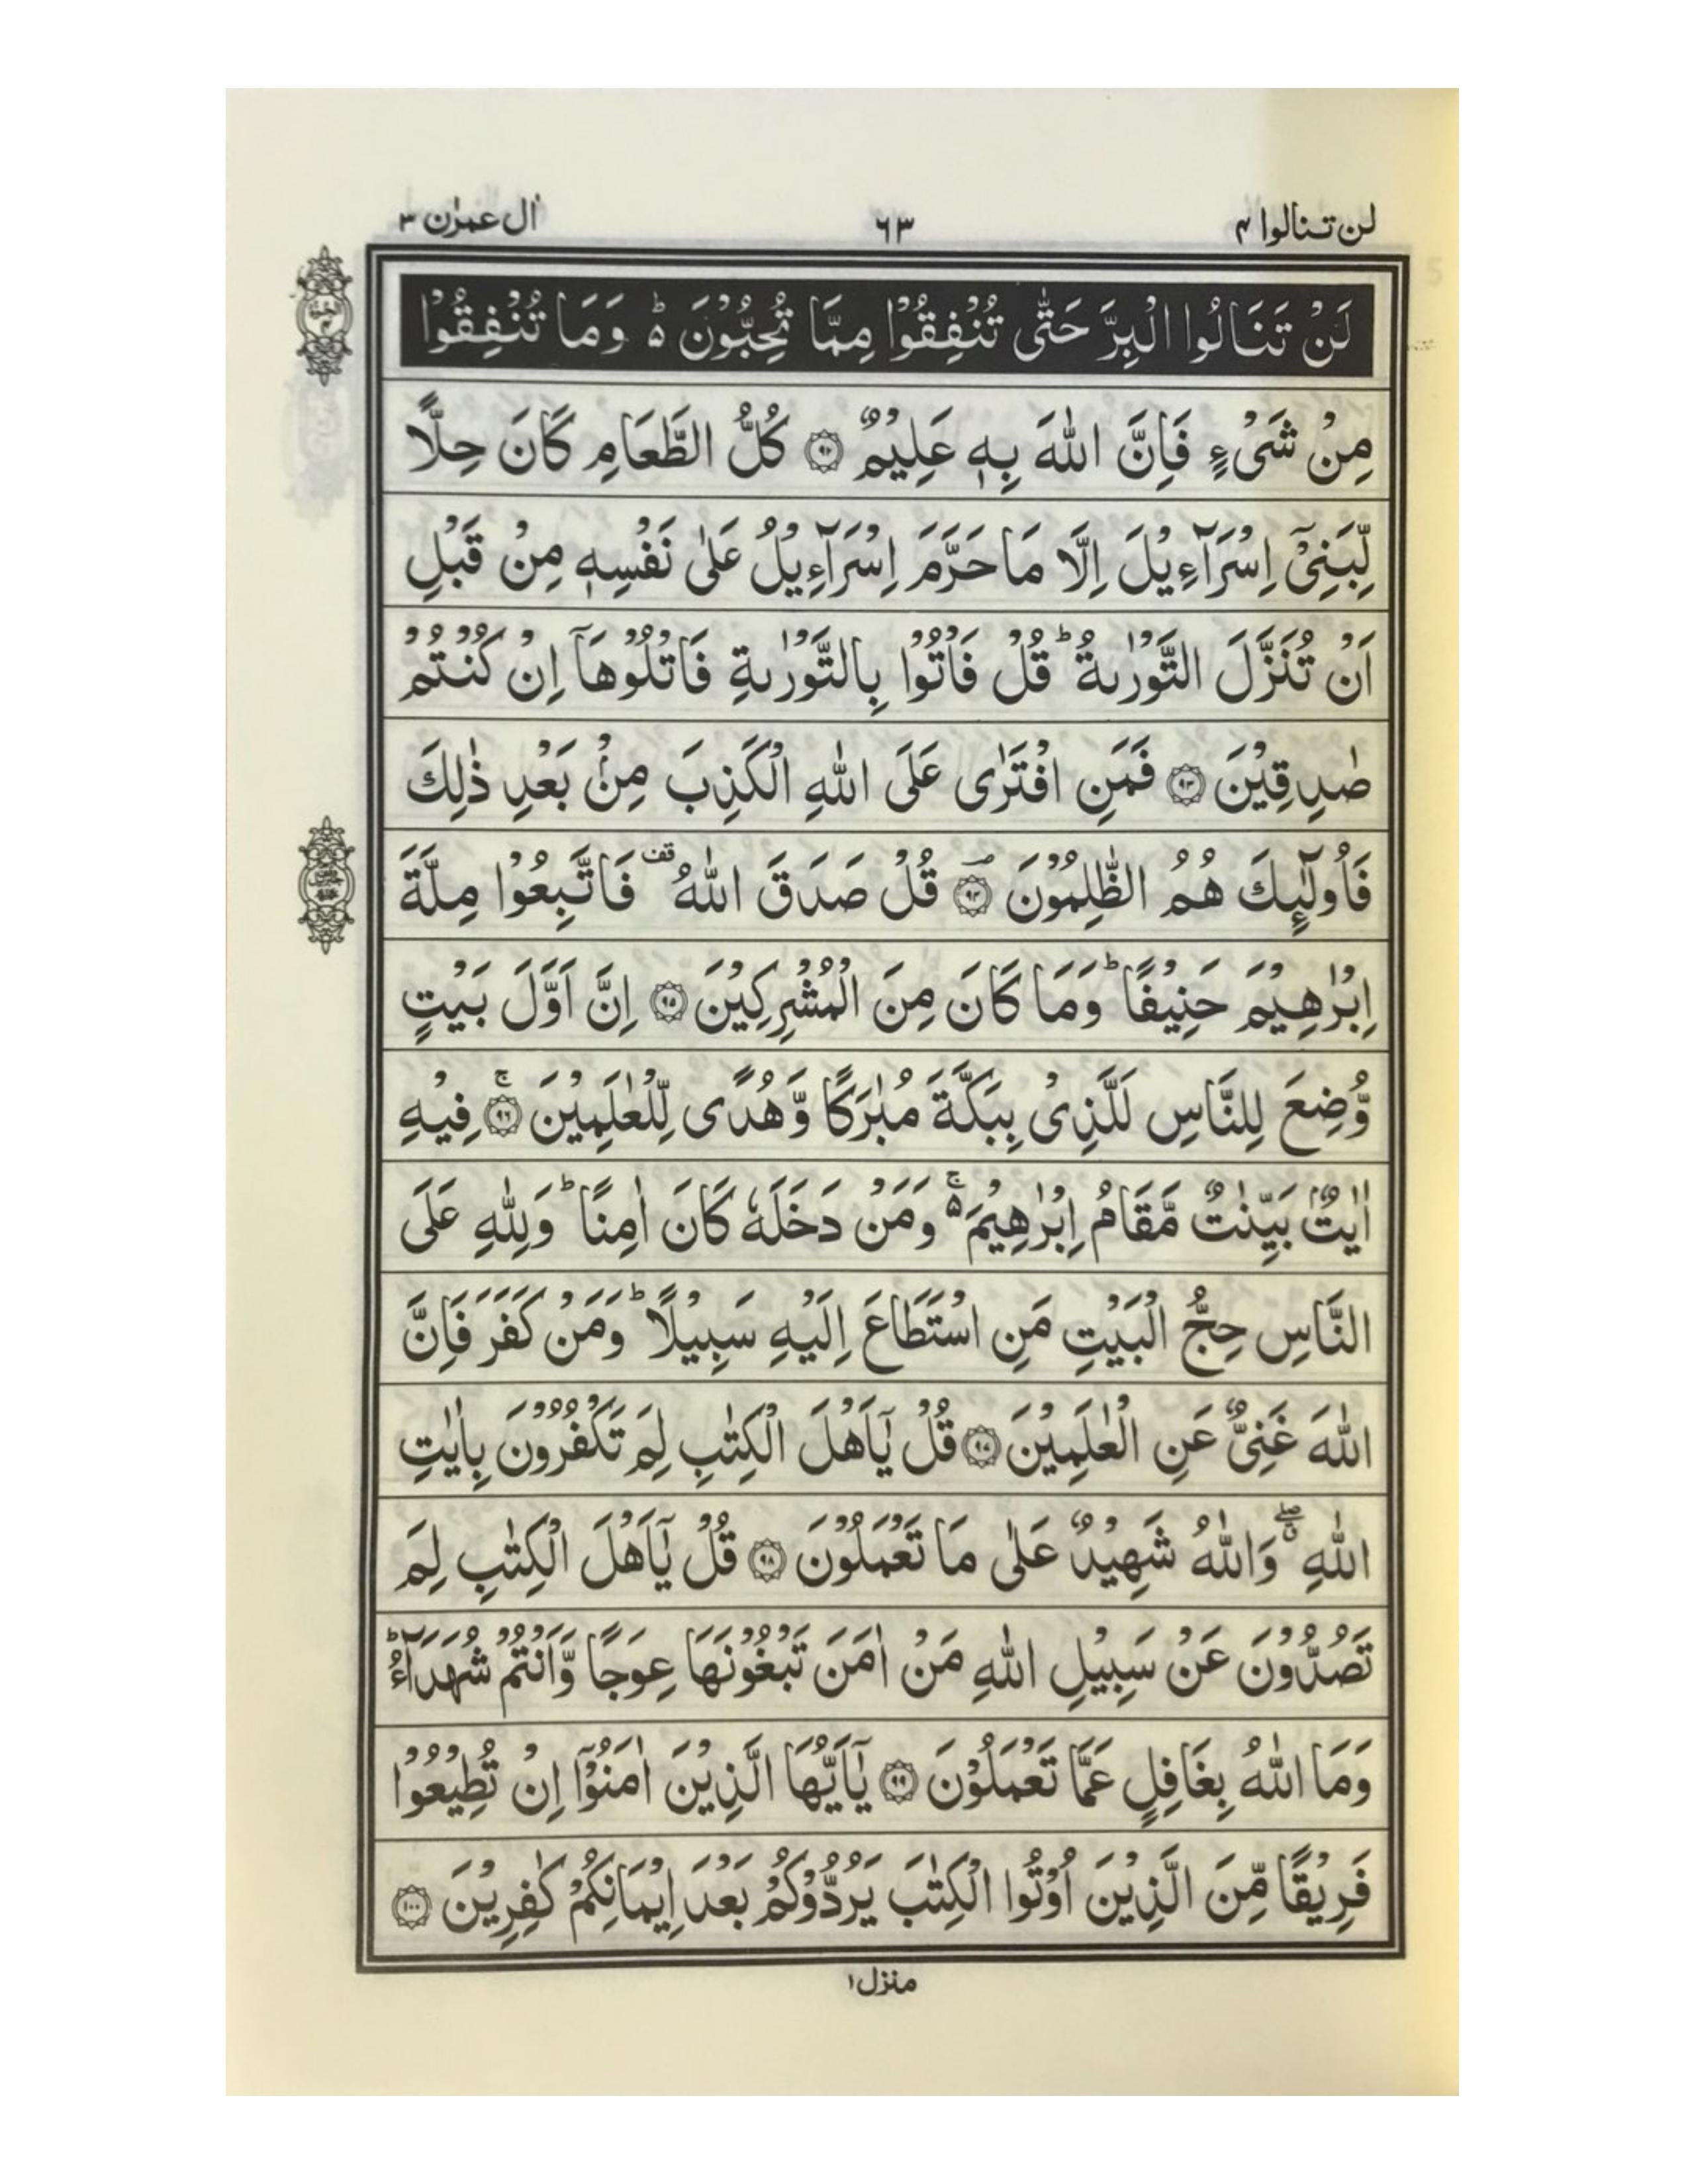 لن تنالوا ۴
٦٣
اٰل عمرٰن ۳
لَنْ تَنَالُوا الْبِرَّ حَتّٰى تُنْفِقُوْا مِمَّا تُحِبُّوْنَ ۵ؕ وَمَا تُنْفِقُوْا
مِنْ شَیْءٍ فَاِنَّ اللّٰهَ بِهٖ عَلِیْمٌ ﴿۹۲﴾ كُلُّ الطَّعَامِ كَانَ حِلًّا
لِّبَنِیْۤ اِسْرَآءِیْلَ اِلَّا مَا حَرَّمَ اِسْرَآءِیْلُ عَلٰى نَفْسِهٖ مِنْ قَبْلِ
اَنْ تُنَزَّلَ التَّوْرٰىةُ ؕ قُلْ فَاْتُوْا بِالتَّوْرٰىةِ فَاتْلُوْهَاۤ اِنْ كُنْتُمْ
صٰدِقِیْنَ ﴿۹۳﴾ فَمَنِ افْتَرٰى عَلَى اللّٰهِ الْكَذِبَ مِنْۢ بَعْدِ ذٰلِكَ
فَاُولٰٓىِٕكَ هُمُ الظّٰلِمُوْنَ ﴿۹۴﴾ؔ قُلْ صَدَقَ اللّٰهُ قف فَاتَّبِعُوْا مِلَّةَ
اِبْرٰهِیْمَ حَنِیْفًا ؕ وَمَا كَانَ مِنَ الْمُشْرِكِیْنَ ﴿۹۵﴾ اِنَّ اَوَّلَ بَیْتٍ
وُّضِعَ لِلنَّاسِ لَلَّذِیْ بِبَكَّةَ مُبٰرَكًا وَّهُدًى لِّلْعٰلَمِیْنَ ﴿۹۶﴾ۚ فِیْهِ
اٰیٰتٌۢ بَیِّنٰتٌ مَّقَامُ اِبْرٰهِیْمَ ۵ۚ وَمَنْ دَخَلَهٗ كَانَ اٰمِنًا ؕ وَلِلّٰهِ عَلَى
النَّاسِ حِجُّ الْبَیْتِ مَنِ اسْتَطَاعَ اِلَیْهِ سَبِیْلًا ؕ وَمَنْ كَفَرَ فَاِنَّ
اللّٰهَ غَنِیٌّ عَنِ الْعٰلَمِیْنَ ﴿۹۷﴾ قُلْ یٰۤاَهْلَ الْكِتٰبِ لِمَ تَكْفُرُوْنَ بِاٰیٰتِ
اللّٰهِ ۖۗ وَاللّٰهُ شَهِیْدٌ عَلٰى مَا تَعْمَلُوْنَ ﴿۹۸﴾ قُلْ یٰۤاَهْلَ الْكِتٰبِ لِمَ
تَصُدُّوْنَ عَنْ سَبِیْلِ اللّٰهِ مَنْ اٰمَنَ تَبْغُوْنَهَا عِوَجًا وَّاَنْتُمْ شُهَدَآءُ ؕ
وَمَا اللّٰهُ بِغَافِلٍ عَمَّا تَعْمَلُوْنَ ﴿۹۹﴾ یٰۤاَیُّهَا الَّذِیْنَ اٰمَنُوْۤا اِنْ تُطِیْعُوْا
فَرِیْقًا مِّنَ الَّذِیْنَ اُوْتُوا الْكِتٰبَ یَرُدُّوْكُمْ بَعْدَ اِیْمَانِكُمْ كٰفِرِیْنَ ﴿۱۰۰﴾
منزل ۱